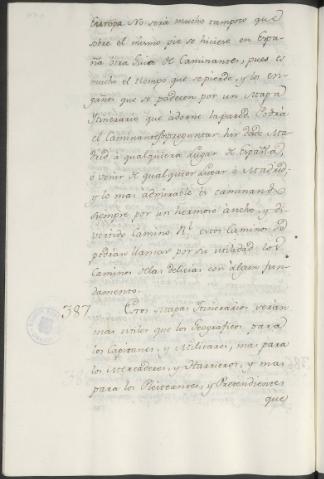 Europa. No seria mucho tampoco que
sobre el mismo pie se hiciese en Espa-
ña otra Guia de Caminantes, pues es
mucho el tiempo que se pierde, y los en-
gaños que se padecen por un Mapa
Itinerario que adorne la pared. Podrá
el Caminante sin preguntar hir desde Ma-
drid á qualquiera Lugar de España,
ó venir de qualquier Lugar á Madrid
y lo mas admirable es caminando
siempre por un hermoso ancho, y di-
vertido Camino Rl. estos Caminos se
podrian llamar por su utilidad los
Caminos de las delicias con algun fun-
damento.
387 Estos Mapas Itinerarios serian
mas utiles que los Geograficos para
los Capitanes, y Militares, mas para
los Mercaderes, y Harrieros, y mas
para los Pleiteantes, y Pretendientes
que